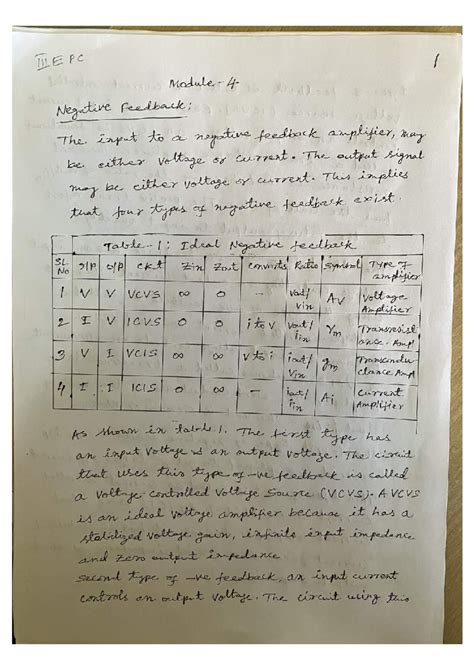 III E PC
1
Module-4
Negative Feedback:
The input to a negative feedback amplifier, may
be either voltage or current. The output signal
may be either voltage or current. This implies
that four types of negative feedback exist.
Table-1: Ideal Negative feedback
SL No I/P O/P Ckt Zin Zout Converts Ratio Symbol Type of amplifier
1 V V VCVS ∞ 0 - Vout/Vin Av Voltage Amplifier
2 I V ICVS 0 0 i to V Vout/iin rm Transresistance Amp
3 V I VCIS ∞ ∞ V to i iout/Vin gm Transconductance Amp
4 I I ICIS 0 ∞ - iout/iin Ai Current Amplifier
As shown in table 1. The first type has
an input voltage & an output voltage. The circuit
that uses this type of -ve feedback is called
a voltage controlled voltage source (VCVS). A VCVS
is an ideal voltage amplifier because it has a
stabilized voltage gain, infinite input impedance
and zero output impedance
Second type of -ve feedback, an input current
controls an output voltage. The circuit using this